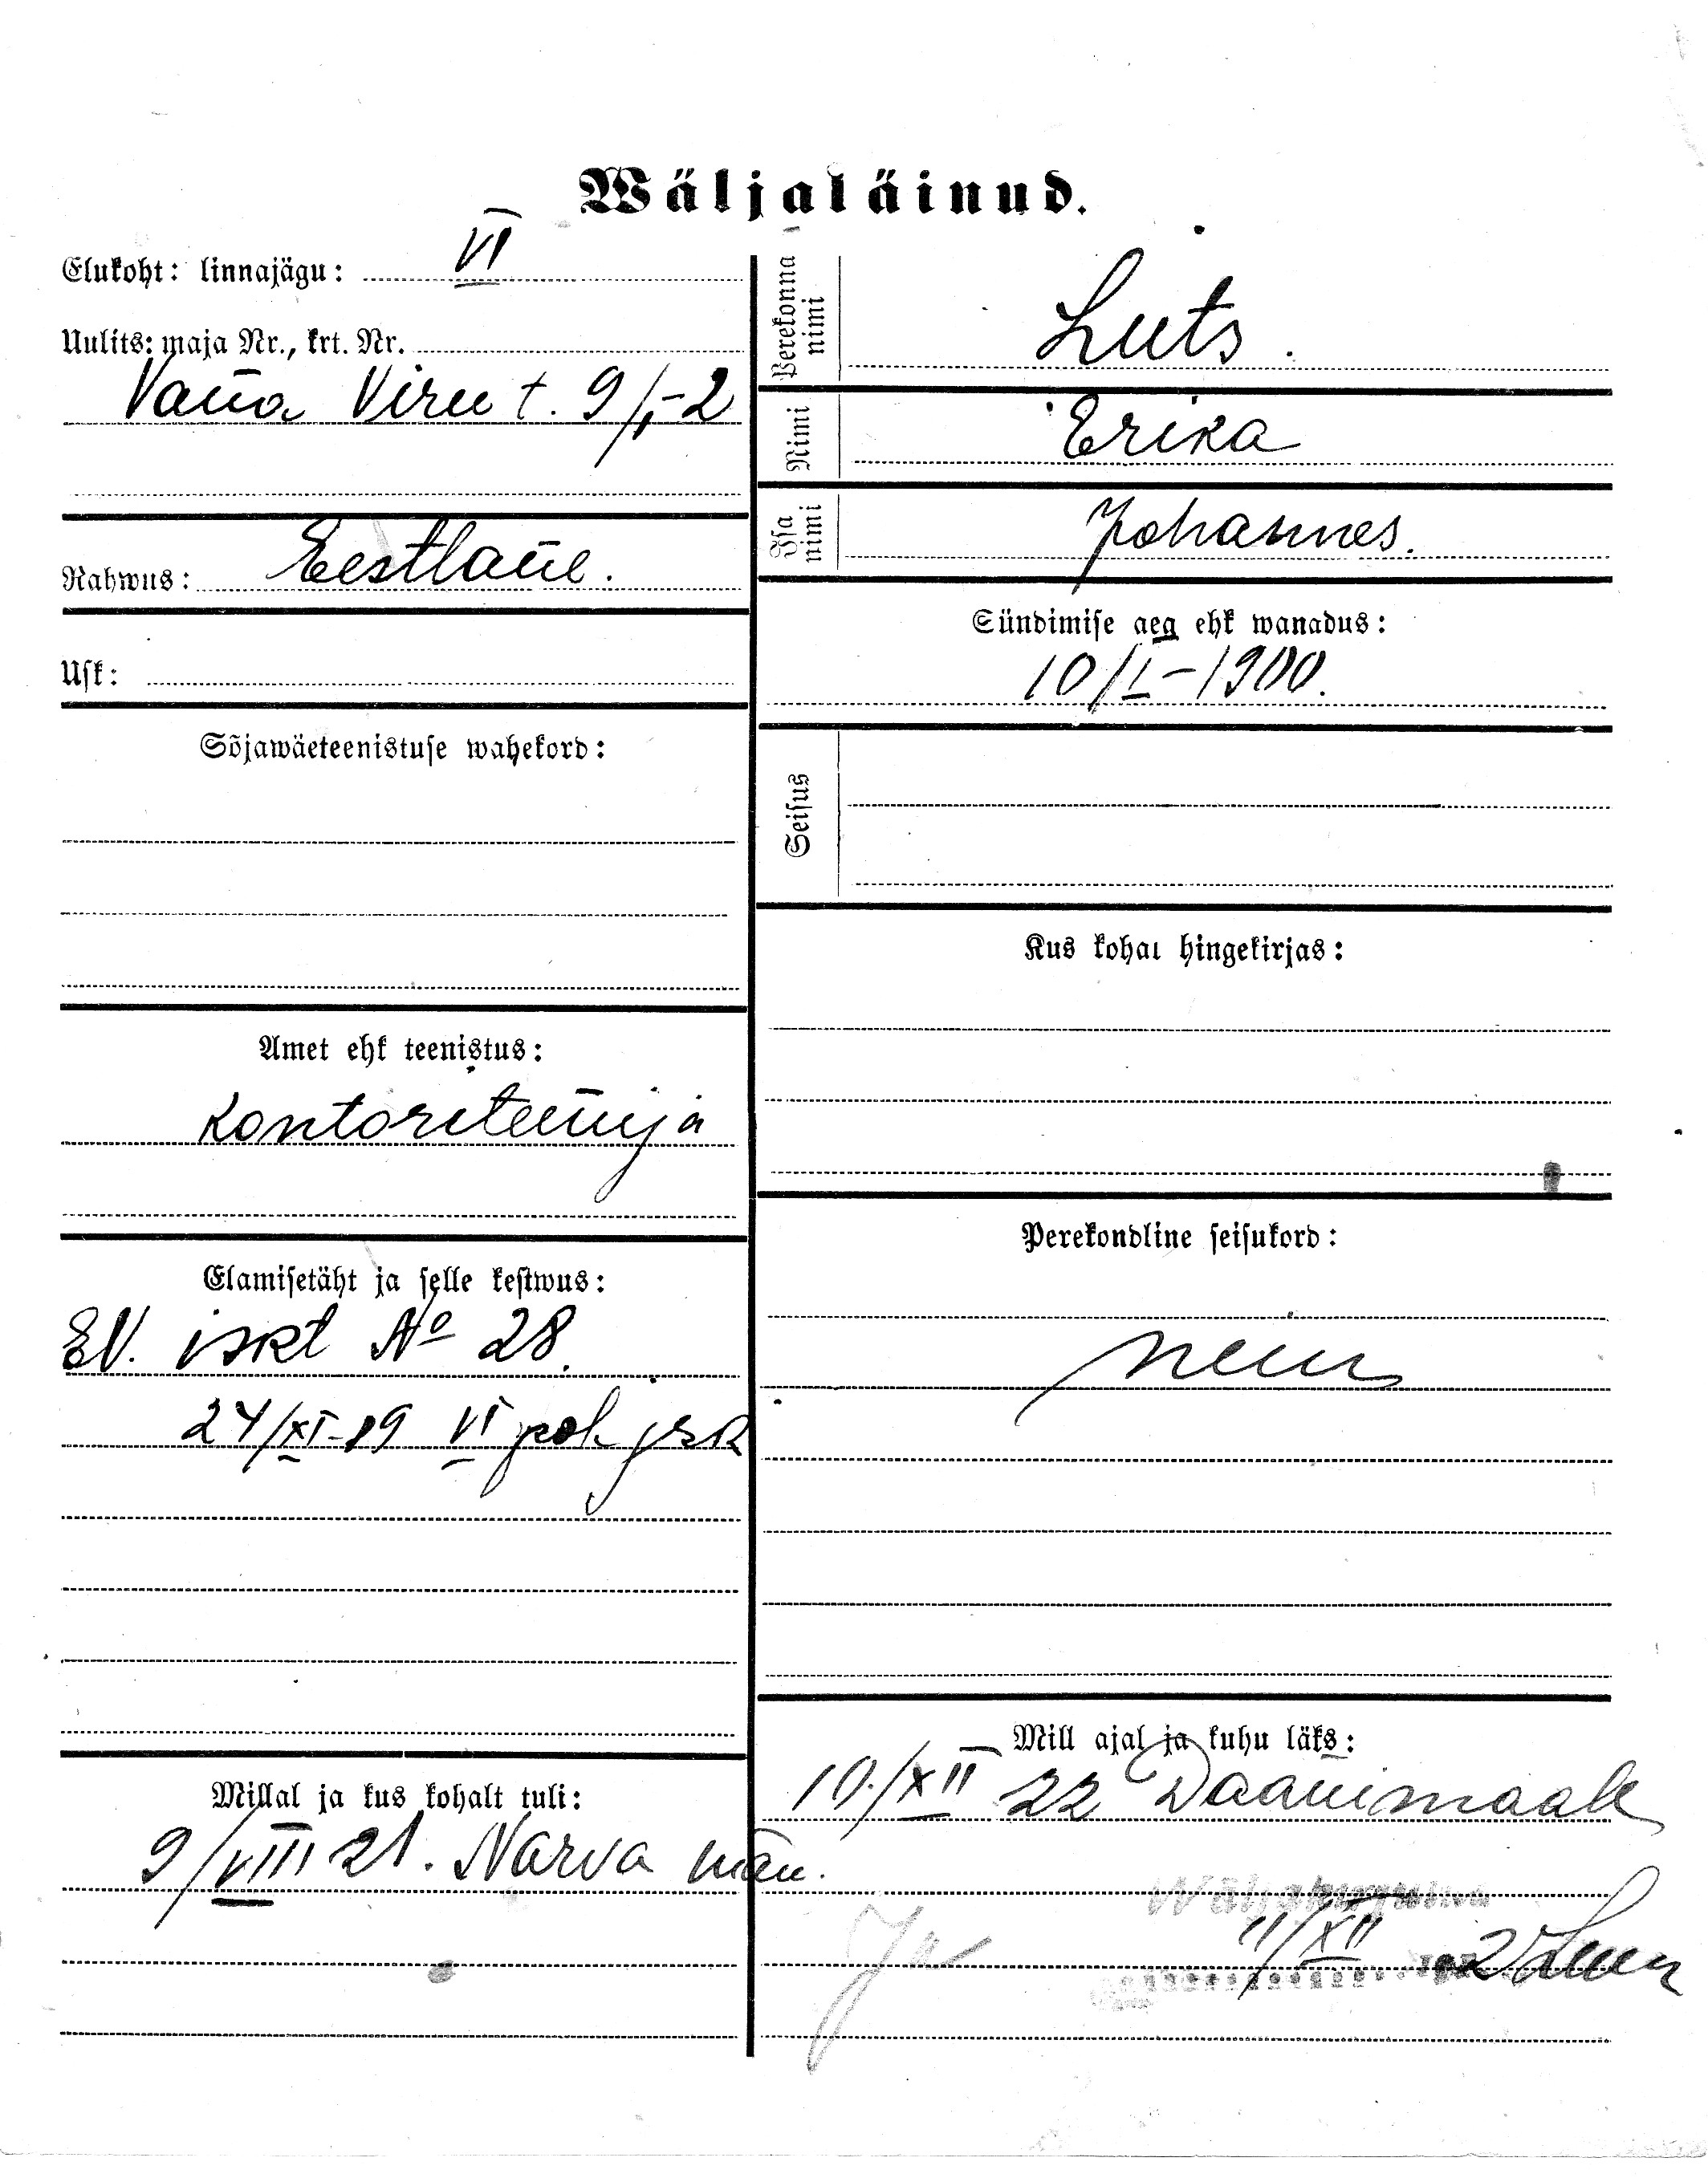 Wäljaläinud.
Elukoht: linnajägu: VI
Uulits: maja Nr., krt. Nr.
Vana Viru t. 9/1-2
Rahwus: Eestlane.
Usk:
Sõjawäeteenistuse wahekord:
Amet ehk teenistus:
Kontoriteenija
Elamisetäht ja selle kestwus:
EV. iskt No 28.
24/XI-19 VI pol jsk
Millal ja kus kohalt tuli:
9/VIII 21. Narva män.
Perekonna nimi
Luts.
Nimi
Erika
Isa nimi
Johannes.
Sündimise aeg ehk wanadus:
10/I-1900.
Seisus
Kus kohal hingekirjas:
Perekondline seisukord:
neiu
Mill ajal ja kuhu läks:
10./XII 22 Daanimaale
11/XII 192